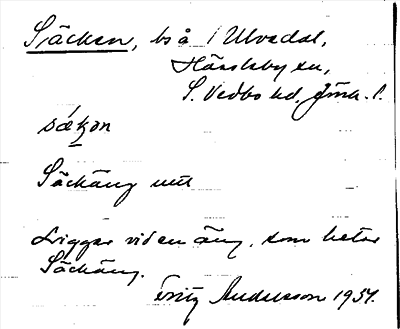 Säcken, bs å Ulvedal,
Hässleby sn,
S. Vedbo hd. Jönk. l.
sækɔn
Säckäng mtt
Ligger vid en äng, som heter
Säckäng.
Fritz Andersson 1951.